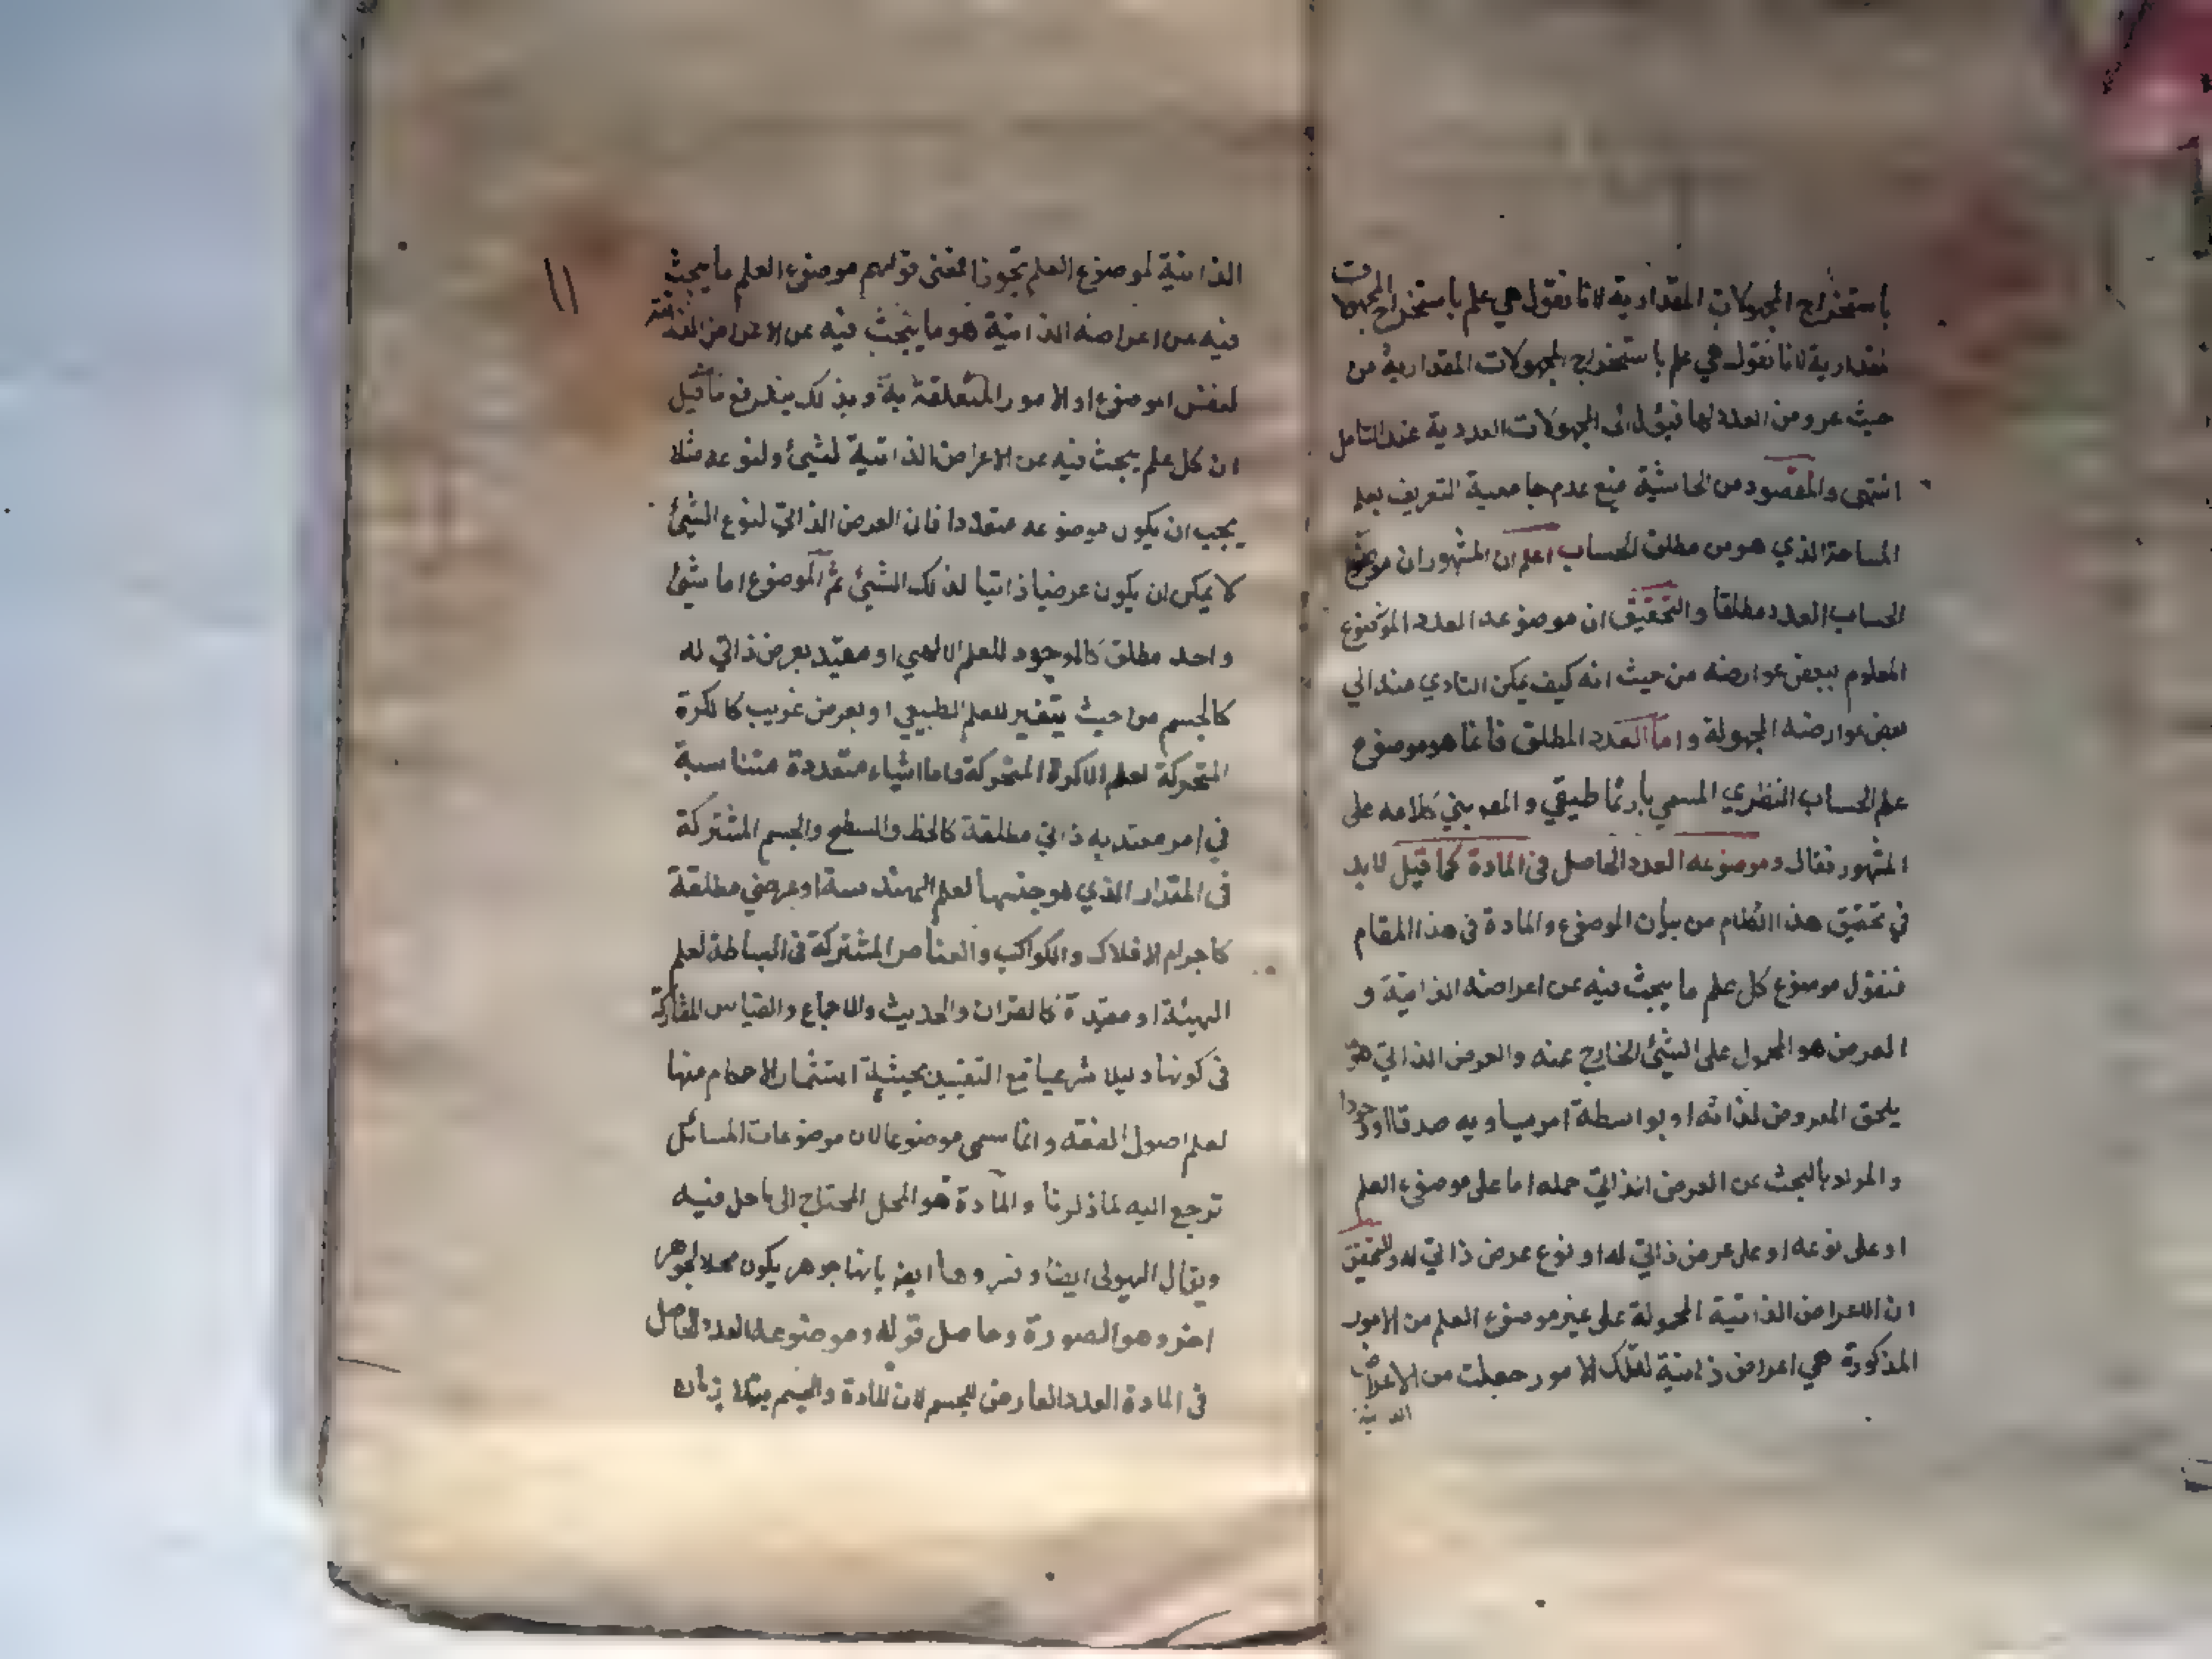 باستخراج المجهولات المقدارية لانا نقول هي علم باستخراج المجهولات
مقدارية لانا نقول هي علم باستخراج المجهولات المقدارية من
حيث عروض العدد لها فيؤل الى المجهولات العددية عند التامل
انتهى والمقصود من الحاشية منع عدم جامعية التعريف بعلم
المساحة الذي هو من مطلق الحساب اعلم ان المشهور ان موضوع
الحساب العدد مطلقا والتحقيق ان موضوعه العدد الموضوع
المعلوم ببعض عوارضه من حيث انه كيف يمكن التادي منه الي
بعض عوارضه المجهولة واما العدد المطلق فانما هو موضوع
علم الحساب النظري المسمي بارثماطيقي والمص بني كلامه على
المشهور فقال وموضوعه العدد الحاصل في المادة كما قيل لابد
في تحقيق هذا الكلام من بيان الموضوع والمادة في هذا المقام
فنقول موضوع كل علم ما يبحث فيه عن اعراضه الذاتية و
العرض هو المحمول على الشئ الخارج عنه والعرض الذاتي هو
يلحق المعروض لذاته او بواسطة امر يساويه صدقا او وجودا
والمراد بالبحث عن العرض الذاتي حمله اما على موضوع العلم
او على نوعه او على عرض ذاتي له او نوع عرض ذاتي له والتحقيق
ان الاعراض الذاتية المحمولة على غير موضوع العلم من الامور
المذكورة هي اعراض ذاتية لتلك الامور جعلت من الاعراض
الذاتية لموضوع العلم تجوزا فمعنى قولهم موضوع العلم ما يبحث
فيه عن اعراضه الذاتية هو ما يبحث فيه عن الاعراض
لنفس الموضوع او الامور المتعلقة به وبذلك يندفع ما قيل
ان كل علم يبحث فيه عن الاعراض الذاتية لشئ ولنوعه مثلا
يجب ان يكون موضوعه متعددا فان العرض الذاتي لنوع الشئ
لا يمكن ان يكون عرضيا ذاتيا لذلك الشئ ثم الموضوع اما شئ
واحد مطلق كالموجود للعلم الالهي او مقيد بعرض ذاتي له
كالجسم من حيث يتغير للعلم الطبيعي او بعرض غريب كالكرة
المتحركة لعلم الاكرة المتحركة واما اشياء متعددة متناسبة
في امر معتد به ذاتي مطلقة كالخط والسطح والجسم المشتركة
في المقدار الذي هو جنسها لعلم الهندسة او عرضي مطلقة
كاجرام الافلاك والكواكب والعناصر المشتركة في البساطة لعلم
الهيئة او مقيدة كالقران والحديث والاجماع والقياس المشاركة
في كونها دليلا شرعيا مع التقييد بحيثية استثمار الاحكام منها
لعلم اصول الفقه وانما سمى موضوعا لان موضوعات المسائل
ترجع اليه لما ذكرنا والمادة هو المحل المحتاج الى ما حل فيه
ويقال الهيولى ايضا وفسروها ايضا بانها جوهر يكون محلا لجوهر
اخر وهو الصورة وحاصل قوله وموضوعه العدد الحاصل
في المادة العدد العارض للجسم لان المادة والجسم يتلازمان